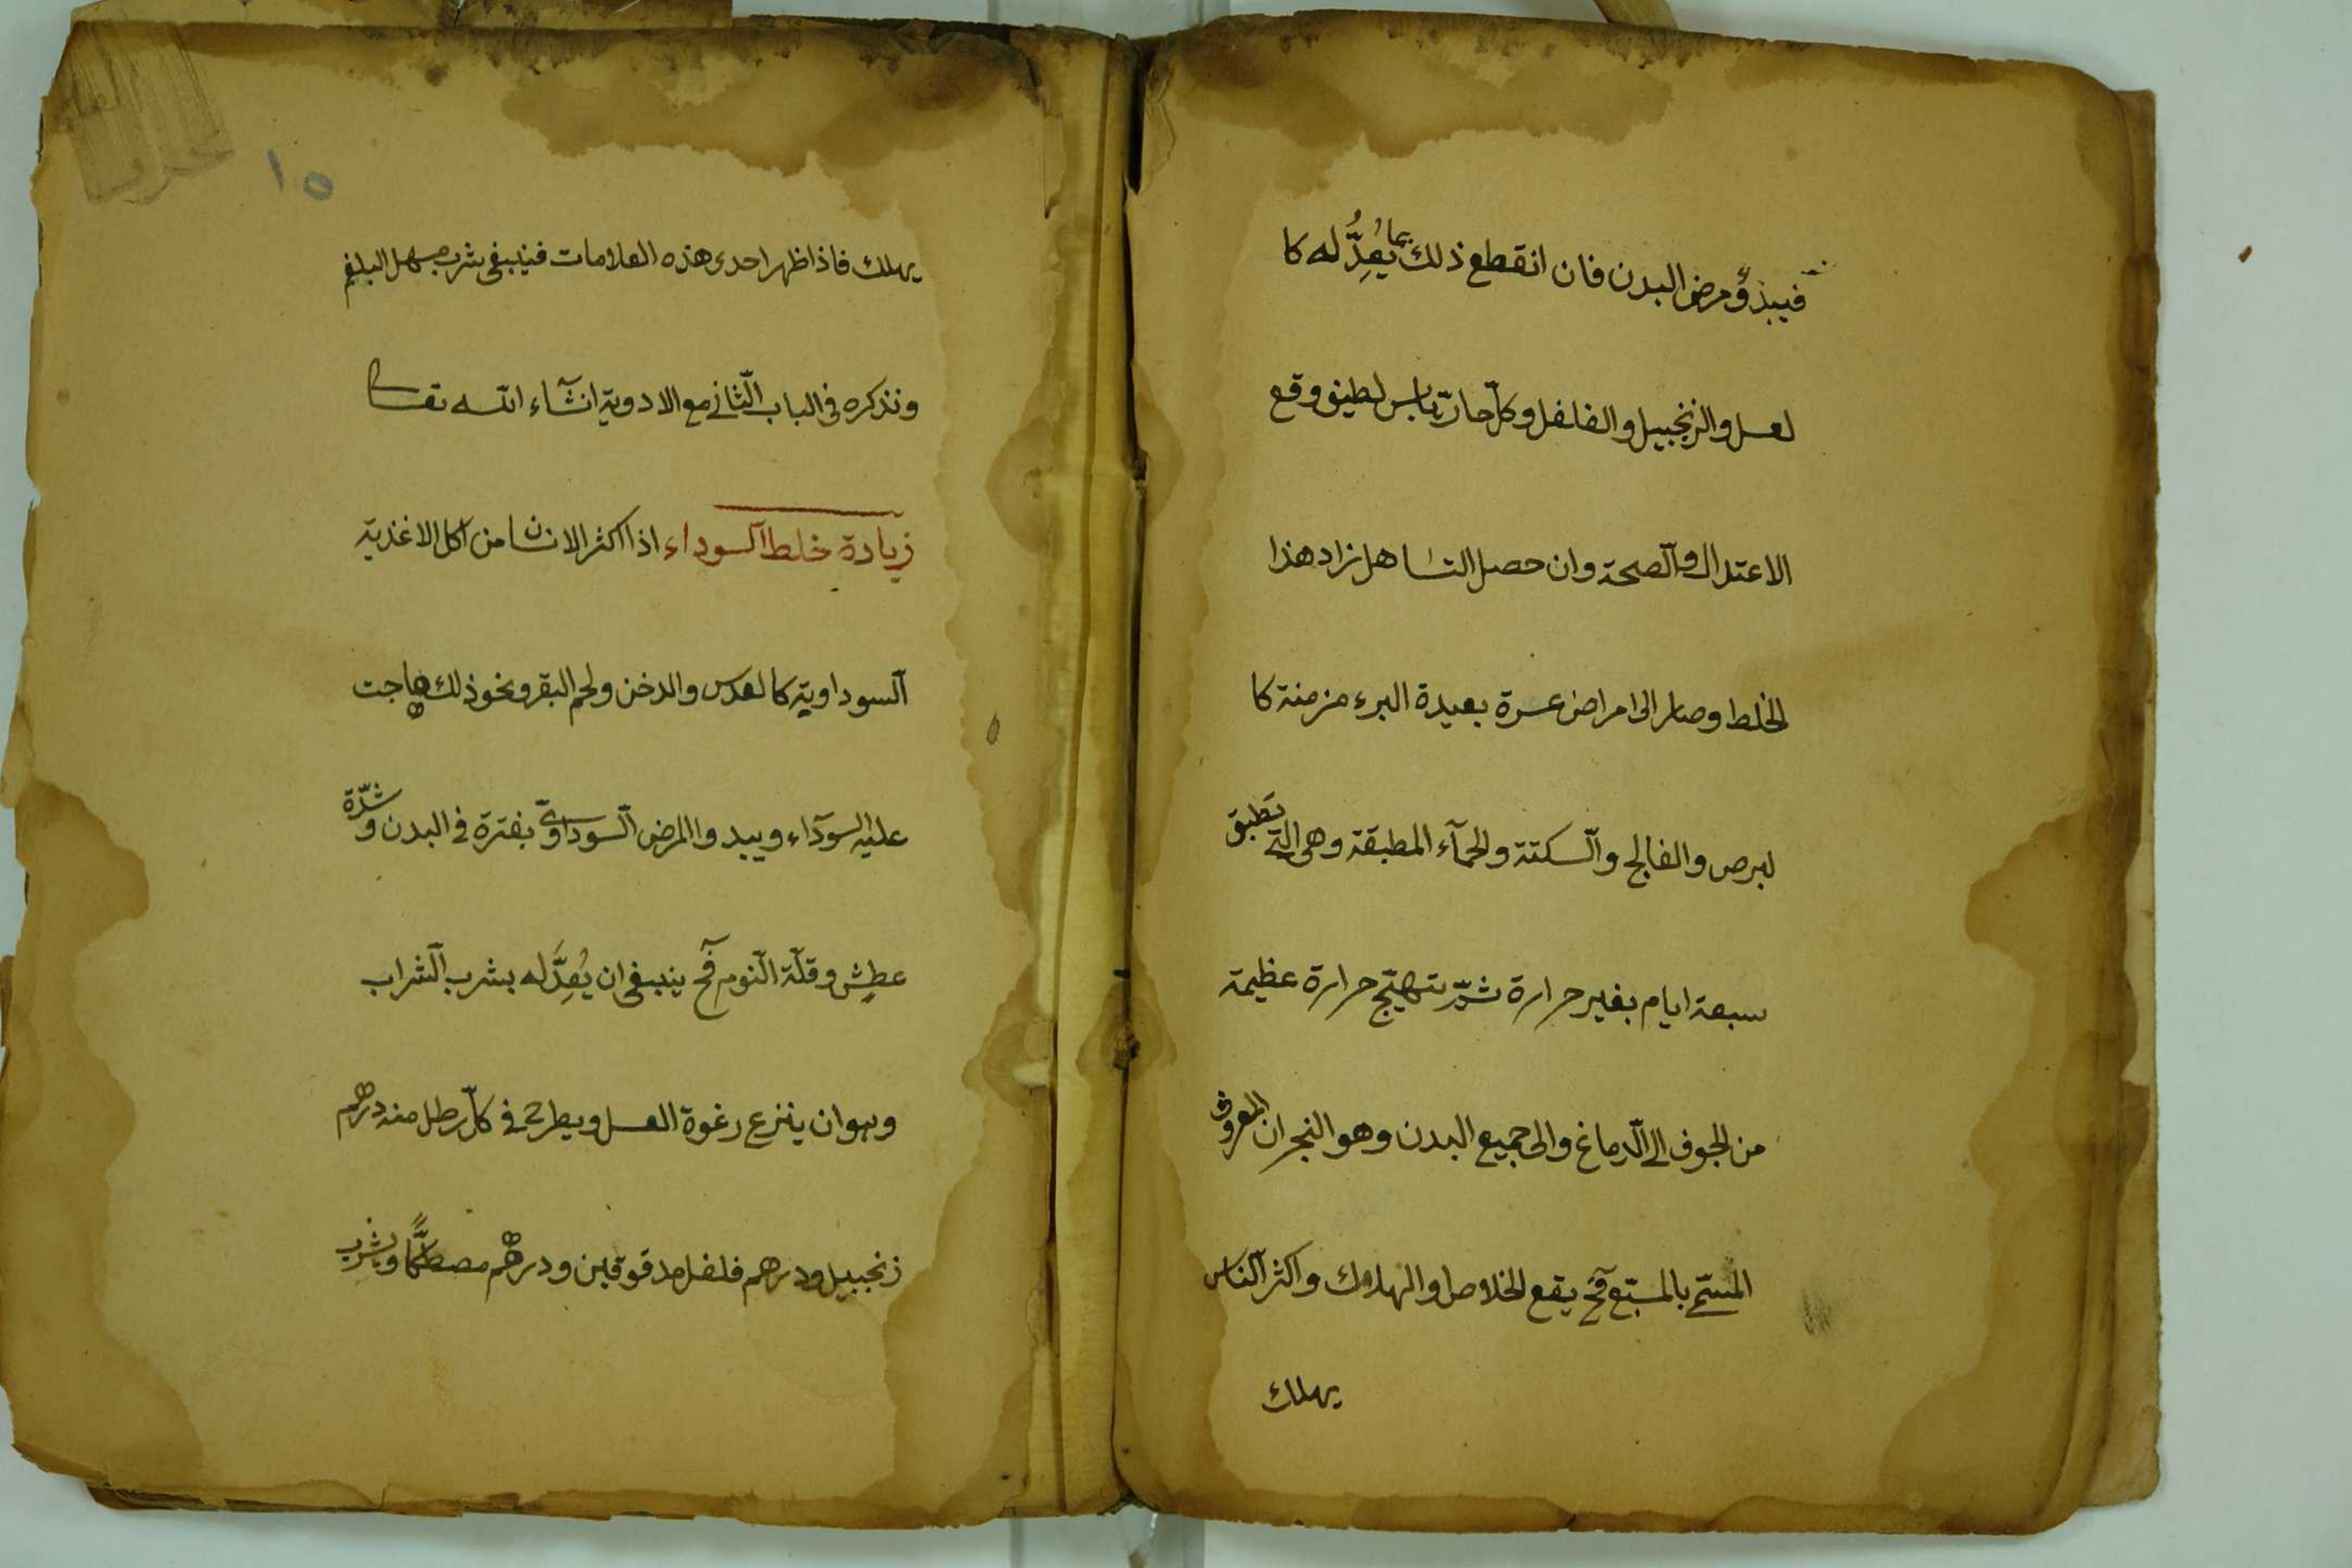 فيبذؤ مرض البدن فان انقطع ذلك بما يُعِدُّ له كا
لعسل والزنجبيل والفلفل وكلّ حارّ يابس لطيف وقع
الاعتدال والصحة وان حصل التساهل زاد هذا
الخلط وصار الى امراض عسرة بعيدة البرء مزمنة كا
لبرص والفالج والسكتة والحمآء المطبقة وهى التى تطبق
سبعة ايام بغير حرارة ثمّ تتهيّج حرارة عظيمة
من الجوف الى الدماغ والى جميع البدن وهو النجران المعروف
المسمّى بالمسبّع فح يقع الخلاص او الهلاك واكثر الناس
يهلك
١٥
يهلك فاذا ظهر احدى هذه العلامات فينبغى شرب مسهل البلغم
ونذكره فى الباب الثانى مع الادوية انشآء الله تعالى
زيادة خلط السوداء اذا اكثر الانسان من اكل الاغذية
السوداوية كالعدس والدخن ولحم البقر ونحو ذلك هاجت
عليه السوداء ويبدوا المرض السوداوىّ بفترة فى البدن وشدّة
عطش وقلّة النوم فح ينبغى ان يُعِدَّ له بشرب الشراب
وهو ان ينزع رغوة العسل ويطرح فى كلّ رطل منه درهم
زنجبيل ودرهم فلفل مدقوقين ودرهم مصطكًّا ويشرب